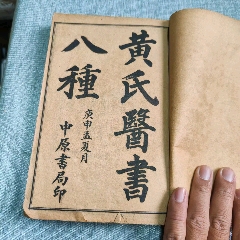 黄氏醫書
八種
庚申孟夏月
中原書局印